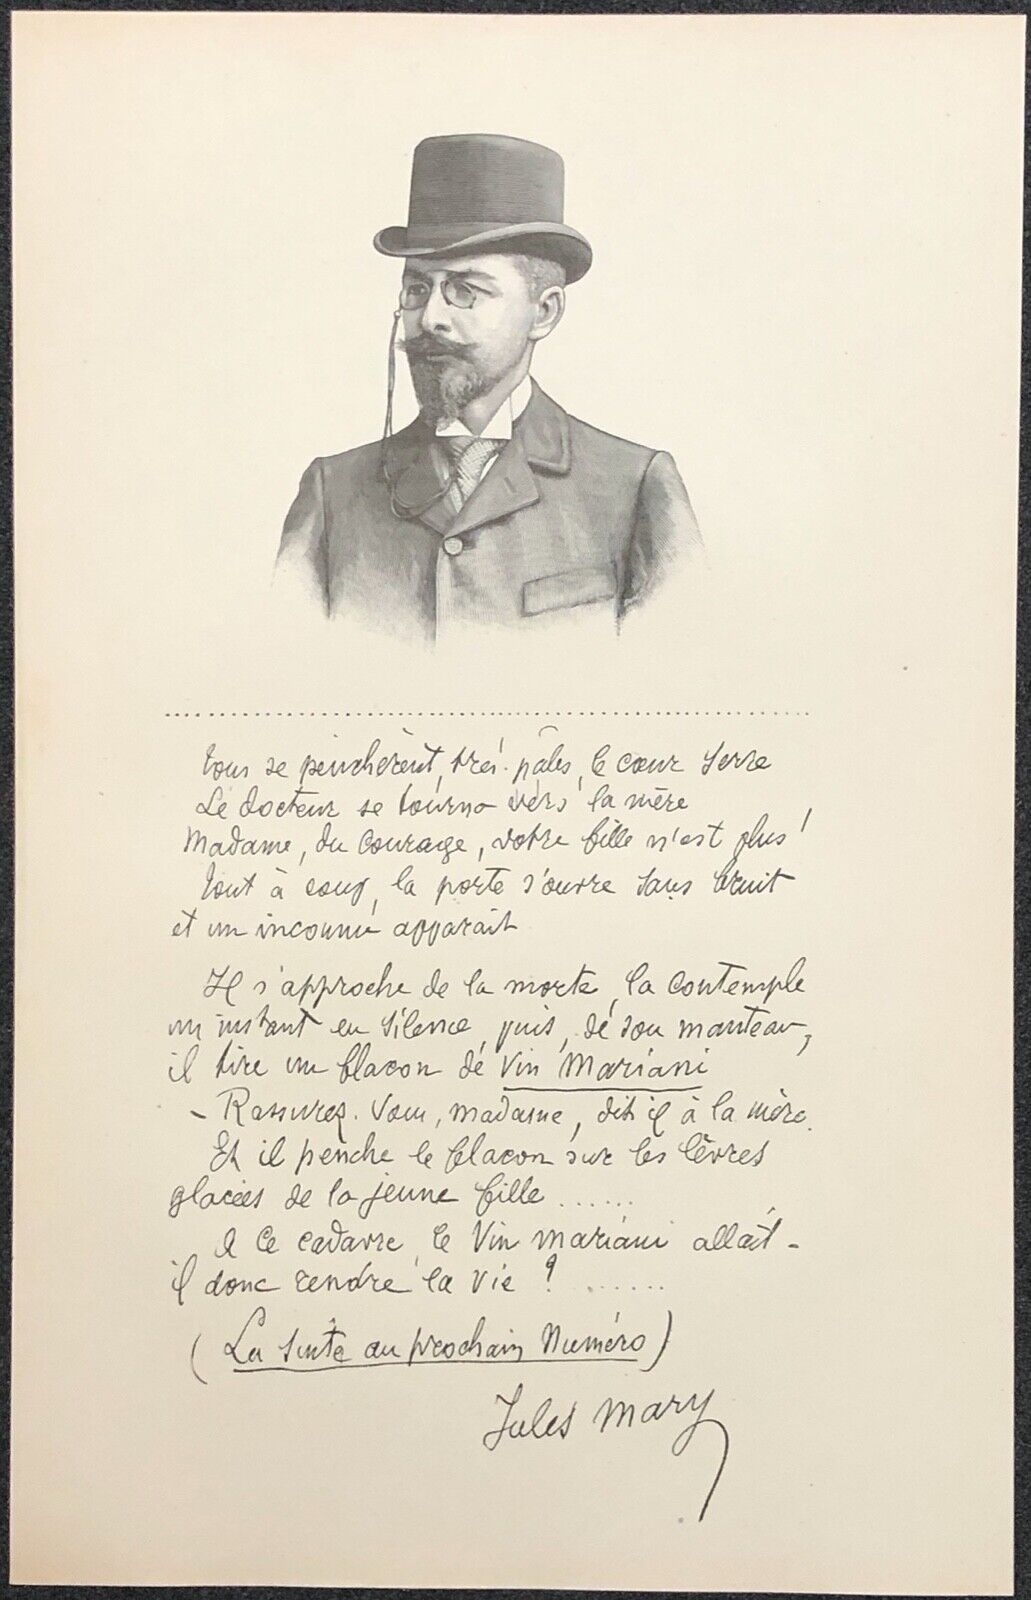 Tous se penchèrent, très pâles, le cœur serré
Le docteur se tourna vers la mère
Madame, du courage, votre fille n'est plus !
Tout à coup, la porte s'ouvre sans bruit
et un inconnu apparait
Il s'approche de la morte, la contemple
un instant en silence, puis, de son manteau,
il tire un flacon de Vin Mariani
– Rassurez-vous, madame, dit-il à la mère.
Et il penche le flacon sur les lèvres
glacées de la jeune fille ......
A ce cadavre, le Vin Mariani allait-
il donc rendre la vie ? ......
(La suite au prochain Numéro)
Jules Mary